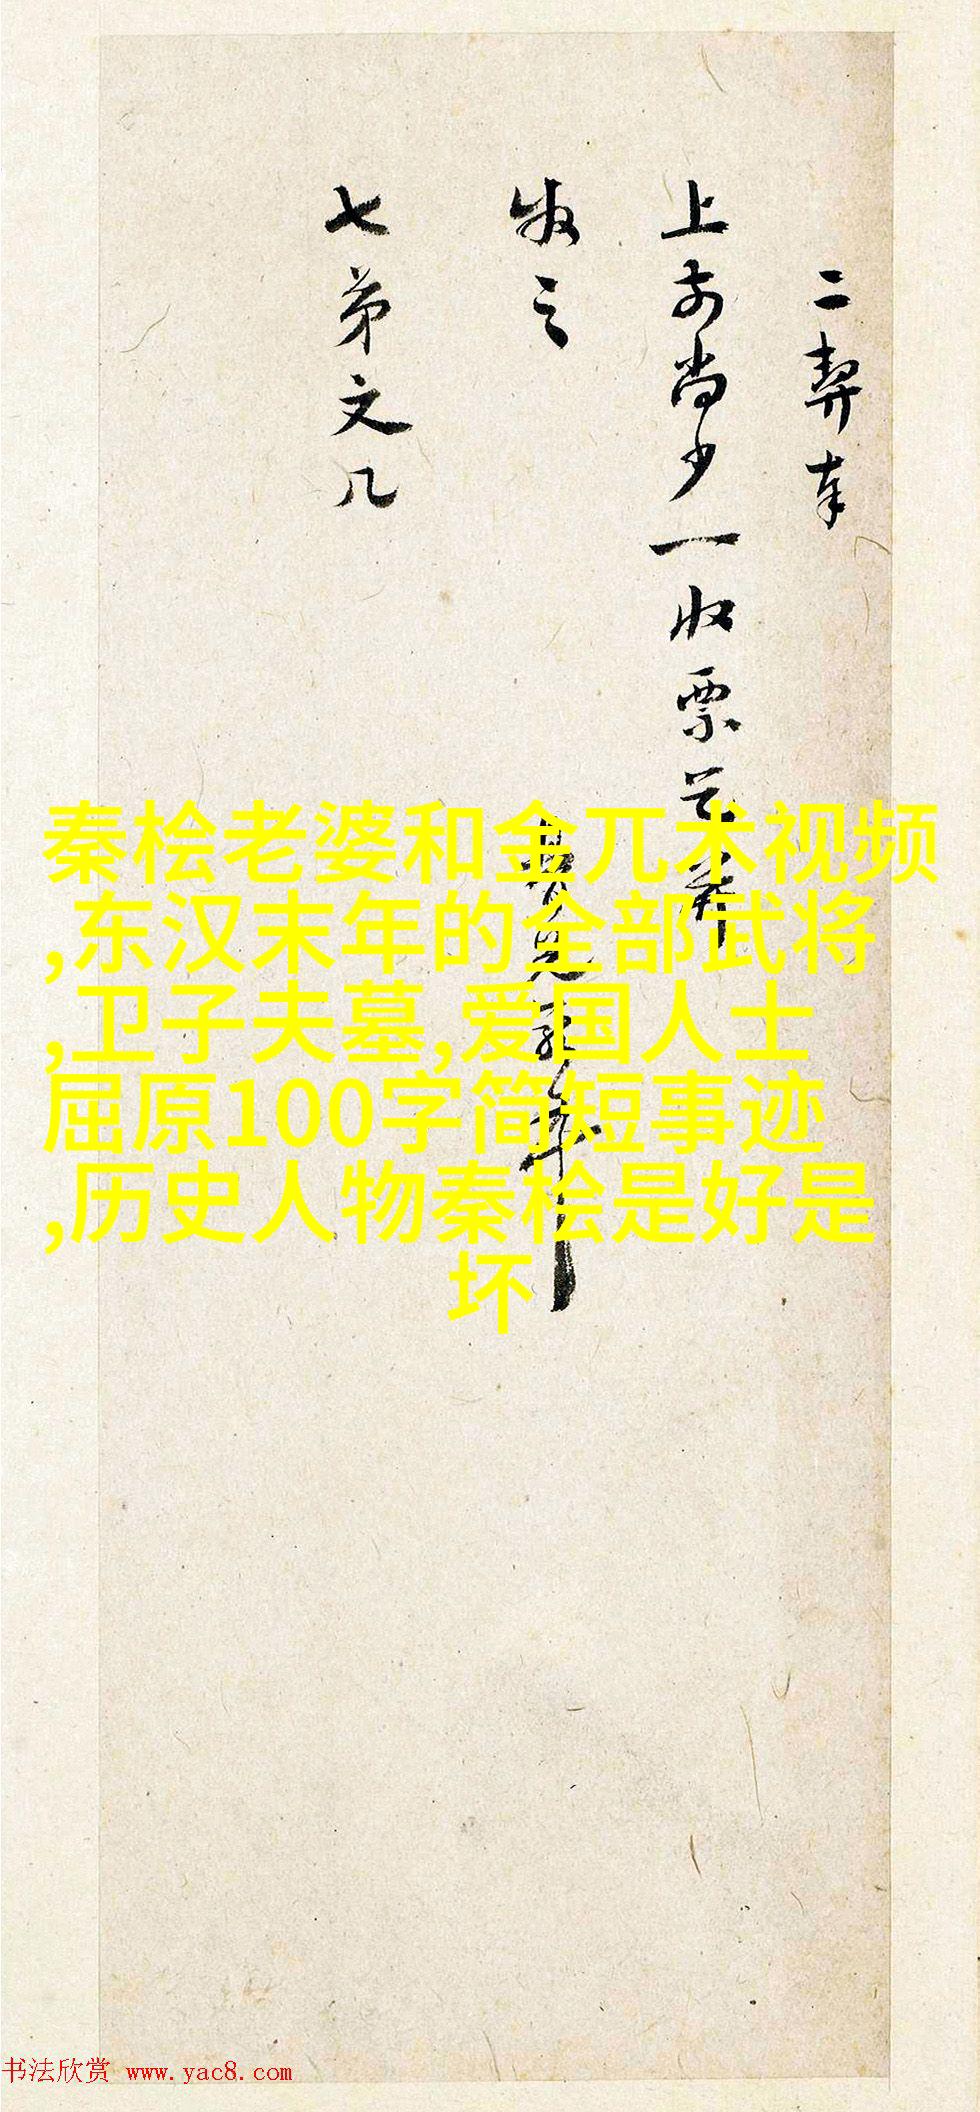 二契奉
上前尚少一收票
收之
七弟文几
秦桧老婆和金兀术视频
,东汉末年的全部武将
,卫子夫墓,爱国人士
屈原100字简短事迹
,历史人物秦桧是好是
坏
书法欣赏 www.yac8.com